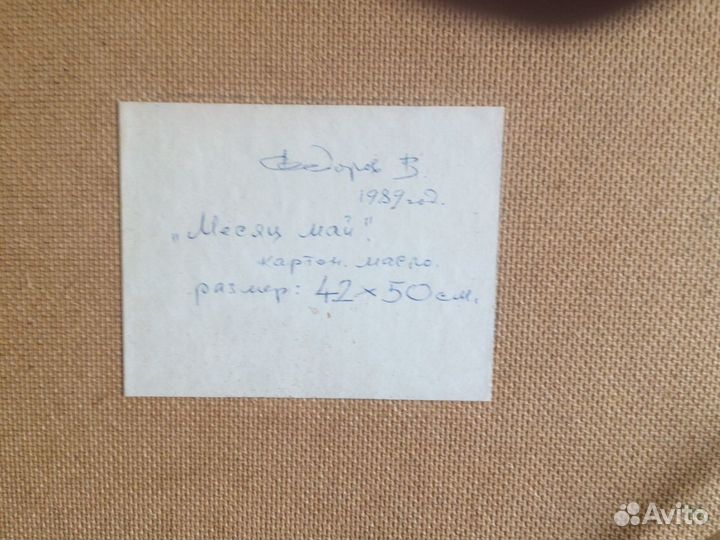 Федоров В.
1989 год.
„Месяц май".
картон. масло.
размер: 42×50 см.
Avito